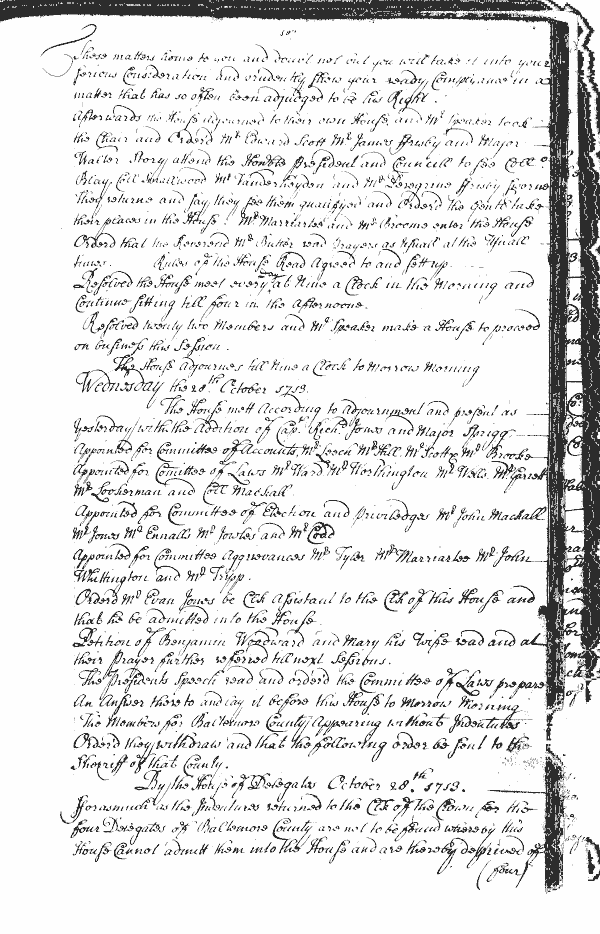 These matters home to you and don't not but you will take it into your
serious Consideration and evidently show your ready Complyance in a
matter that has so often been adjudged to be his Right.
Afterwards the House adjourned to their own House, and Mr Speaker took
the Chair and Orderd Mr Edward Scott Mr James ffrisby and Major
Walter Story attend the Honble President and Councill to see Coll
Blay, Coll Smallwood Mr Vanderheyden and Mr Peregrine ffrisby sworne
They returne and say they see them qualifyed and Orderd the Gents take
their places in the House. Mr Marriartee and Mr Broome enter the House
Orderd that the Reverend Mr Butler read Prayers as Usuall at the Usuall
times. Rules of the House Read Agreed to and sett up
Resolved the House meet every day at Nine a Clock in the Morning and
Continue sitting till four in the Afternoone.
Resolved twenty two Members and Mr Speaker make a House to proceed
on business this Session.
The House Adjournes till Nine a Clock to Morrow Morning
Wednesday the 28th October 1713.
The House mett According to Adjournment and present as
Yesterday with the Addition of Capt Richd Jones and Major Sprigg
Appointed for Committee of Accounts, Mr Leech Mr Hill Mr Scott & Mr Brooke
Appointed for Comittee of Laws Mr Ward Mr Worthington Mr Wells Mr
Mr Looherman and Coll Mackall
Appointed for Committee of Election and Priviledges Mr John Mackall
Mr Jones Mr Ennalls Mr Jowles and Mr Codd
Appointed for Committee Aggrevances Mr Tyler Mr Marriartee Mr John
Whittington and Mr Tripp.
Orderd Mr Evan Jones be Clk Assistant to the Clk of this House and
that he be admitted into the House.
Petition of Benjamin Woodward and Mary his Wife read and at
their Prayer further referred till next Sessions.
The Presidents Speech read and orderd the Committee of Laws prepare
An Answer thereto and lay it before this House to Morrow Morning
The Members for Baltemore County Appearing without Indentures
Orderd they withdraw and that the following order be sent to the
Sherriff of that County.
By the House of Delegates October 28th 1713.
fforasmuch as the Indentures returned to the Clk of the Crown for the
four Delegates of Baltemore County are not to be found whereby this
House Cannot admitt them into the House and are thereby deprived of
(four)